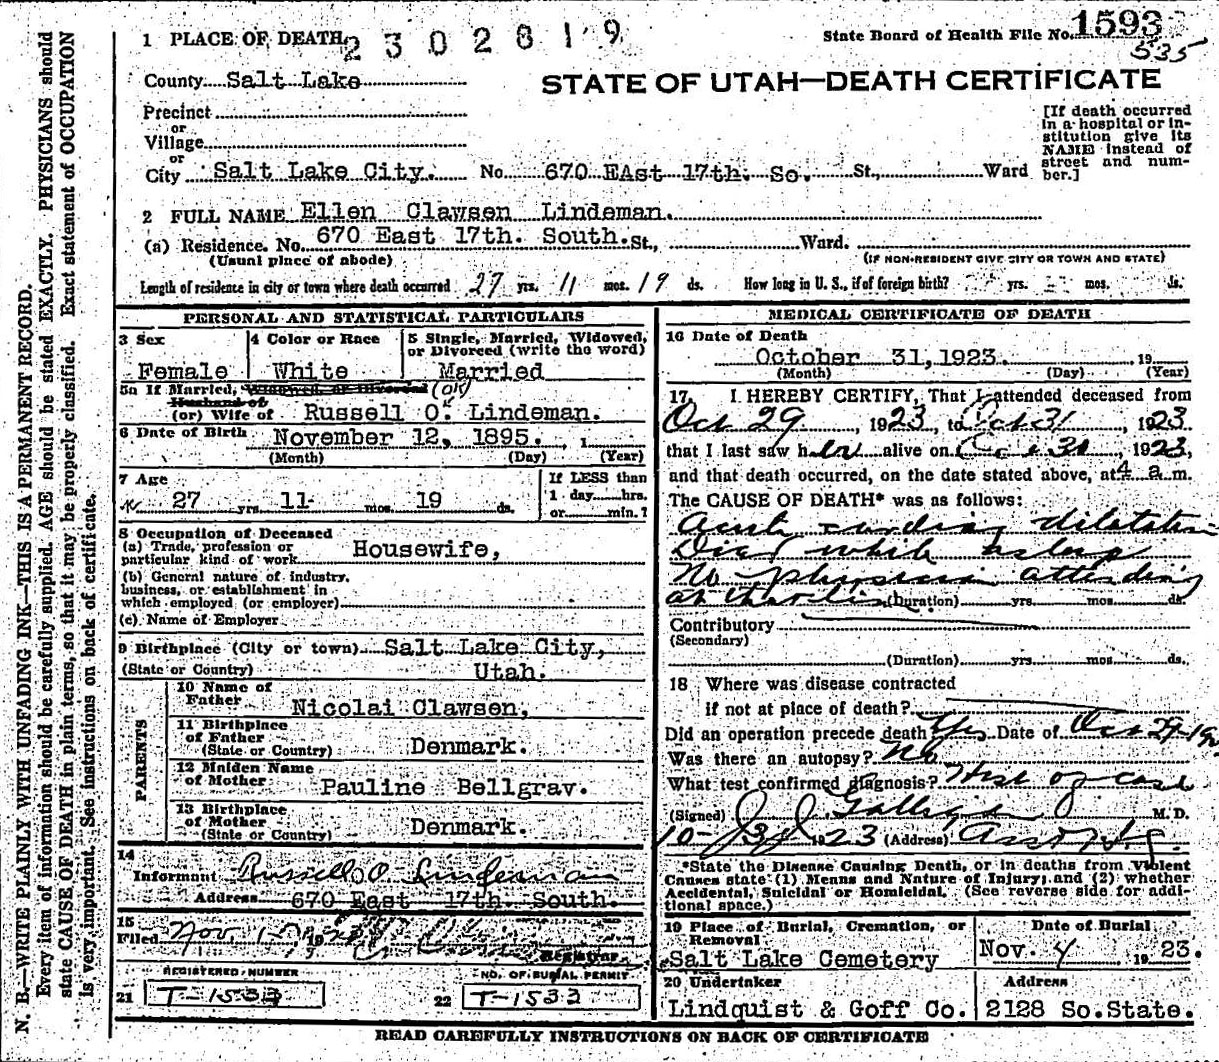 1 PLACE OF DEATH 2302819
State Board of Health File No. 1593
535
County Salt Lake
STATE OF UTAH—DEATH CERTIFICATE
Precinct
or
Village
or
City Salt Lake City. No. 670 EAst 17th. So. St., Ward
[If death occurred
in a hospital or in-
stitution give its
NAME instead of
street and num-
ber.]
2 FULL NAME Ellen Clawsen Lindeman.
(a) Residence. No. 670 East 17th. South. St., Ward.
(Usual place of abode) (IF NON-RESIDENT GIVE CITY OR TOWN AND STATE)
Length of residence in city or town where death occurred 27 yrs. 11 mos. 19 ds. How long in U. S., if of foreign birth? yrs. mos. ds.
PERSONAL AND STATISTICAL PARTICULARS
3 Sex 4 Color or Race 5 Single, Married, Widowed,
or Divorced (write the word)
Female White Married
5a If Married, Widowed, or Divorced (OK)
Husband of
(or) Wife of Russell O. Lindeman.
6 Date of Birth November 12, 1895. , 1
(Month) (Day) (Year)
7 Age If LESS than
27 yrs. 11 mos. 19 ds. 1 day hrs.
or min.?
8 Occupation of Deceased
(a) Trade, profession or
particular kind of work Housewife,
(b) General nature of industry,
business, or establishment in
which employed (or employer)
(c) Name of Employer
9 Birthplace (City or town) Salt Lake City,
(State or Country) Utah.
PARENTS
10 Name of
Father Nicolai Clawsen,
11 Birthplace
of Father
(State or Country) Denmark.
12 Maiden Name
of Mother Pauline Bellgrav.
13 Birthplace
of Mother
(State or Country) Denmark.
14
Informant Russell O. Lindeman
Address 670 East 17th. South.
15
Filed Nov. 1 19
Registrar
REGISTERED NUMBER NO. OF BURIAL PERMIT
21 T-1533 22 T-1533
MEDICAL CERTIFICATE OF DEATH
16 Date of Death
October 31, 1923. , 19
(Month) (Day) (Year)
17 I HEREBY CERTIFY, That I attended deceased from
Oct 29, 1923, to Oct 31, 1923
that I last saw her alive on Oct 30, 1923,
and that death occurred, on the date stated above, at 4 a m.
The CAUSE OF DEATH* was as follows:
Acute cardiac dilatation
Died while asleep
No physician attending
at the time (Duration) yrs. mos. ds.
Contributory
(Secondary)
(Duration) yrs. mos. ds.
18 Where was disease contracted
if not at place of death?
Did an operation precede death Yes Date of Oct 29-19
Was there an autopsy? No
What test confirmed diagnosis? Hist of case
(Signed) M. D.
10-31 1923 (Address)
*State the Disease Causing Death, or in deaths from Violent
Causes state (1) Means and Nature of Injury; and (2) whether
Accidental, Suicidal or Homicidal. (See reverse side for addi-
tional space.)
19 Place of Burial, Cremation, or
Removal Date of Burial
Salt Lake Cemetery Nov. 4 1923.
20 Undertaker Address
Lindquist & Goff Co. 2128 So. State.
READ CAREFULLY INSTRUCTIONS ON BACK OF CERTIFICATE
N. B.—WRITE PLAINLY WITH UNFADING INK—THIS IS A PERMANENT RECORD.
Every item of information should be carefully supplied. AGE should be stated EXACTLY. PHYSICIANS should
state CAUSE OF DEATH in plain terms, so that it may be properly classified. Exact statement of OCCUPATION
is very important. See instructions on back of certificate.